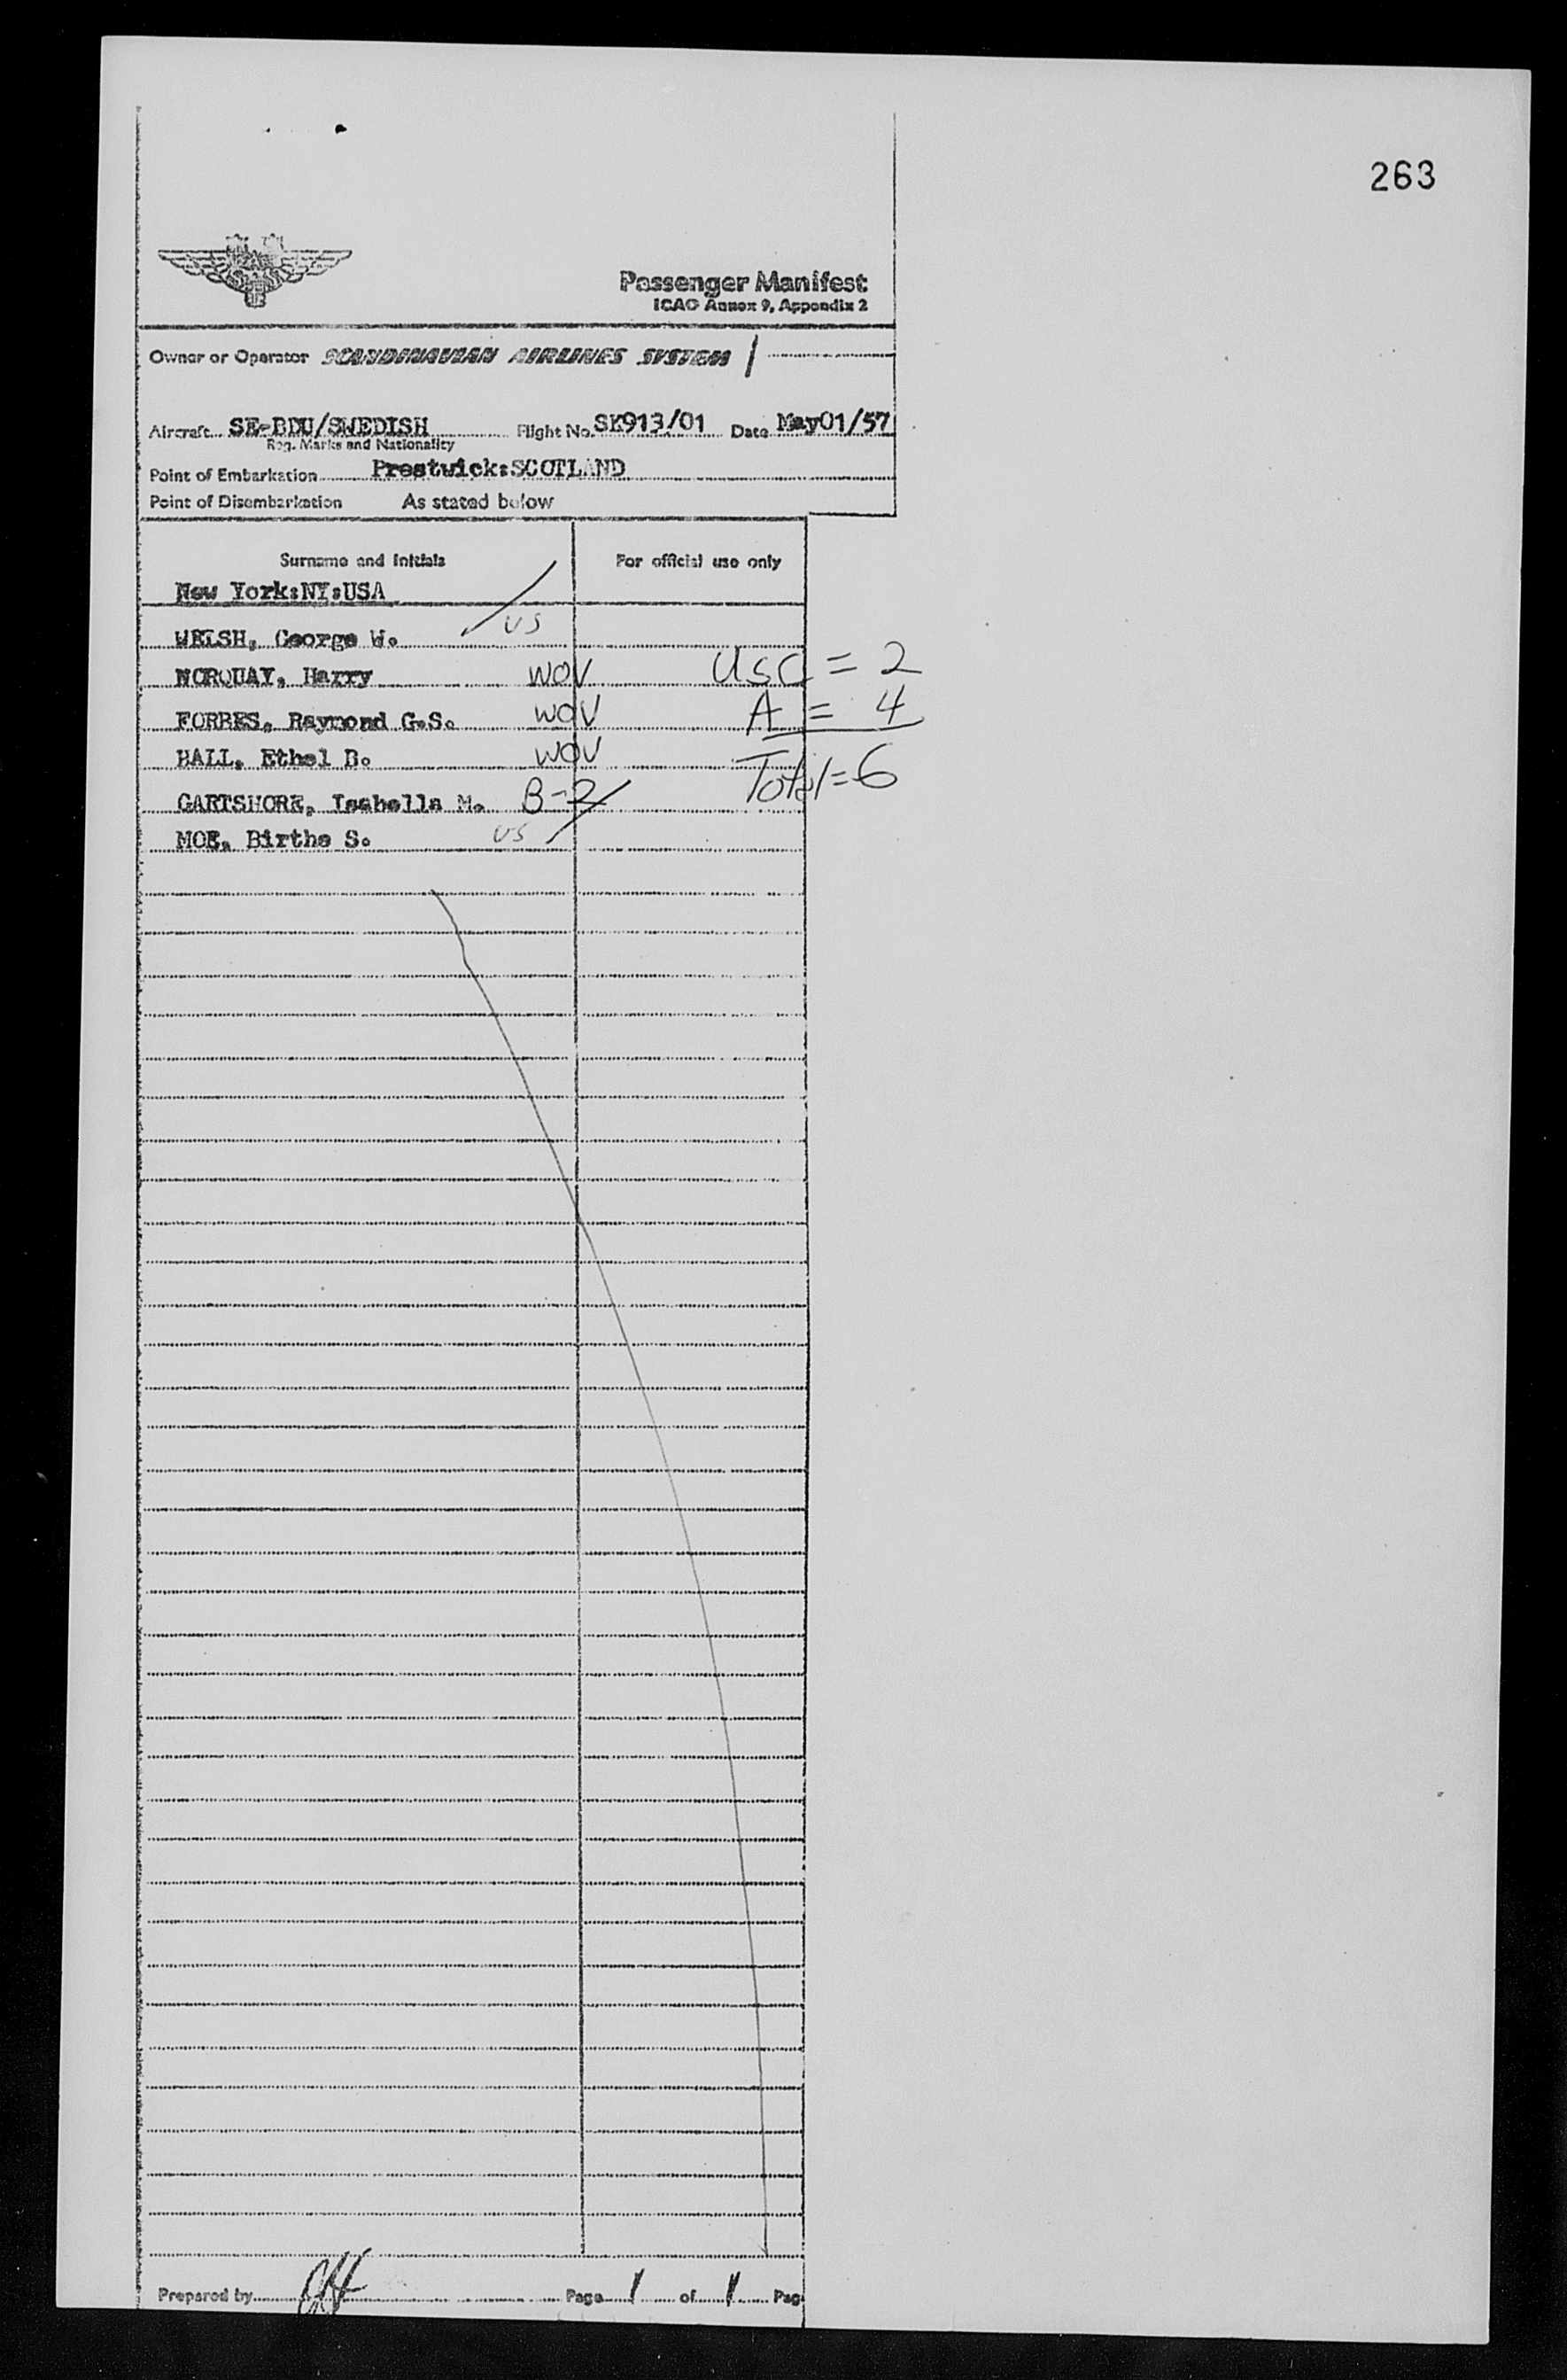 263
Passenger Manifest
ICAO Annex 9, Appendix 2
Owner or Operator SCANDINAVIAN AIRLINES SYSTEM /
Aircraft SE-BDU/SWEDISH Flight No. SK913/01 Date May01/57
Reg. Marks and Nationality
Point of Embarkation Prestwick:SCOTLAND
Point of Disembarkation As stated below
Surname and Initials For official use only
New York:NY:USA
WELSH, George W. US
NORQUAY, Harry WOV USC = 2
FORBES, Raymond G.S. WOV A = 4
HALL, Ethel B. WOV Total = 6
GARTSHORE, Isabella M. B-2
MOE, Birthe S. US
Prepared by Page 1 of 1 Pag